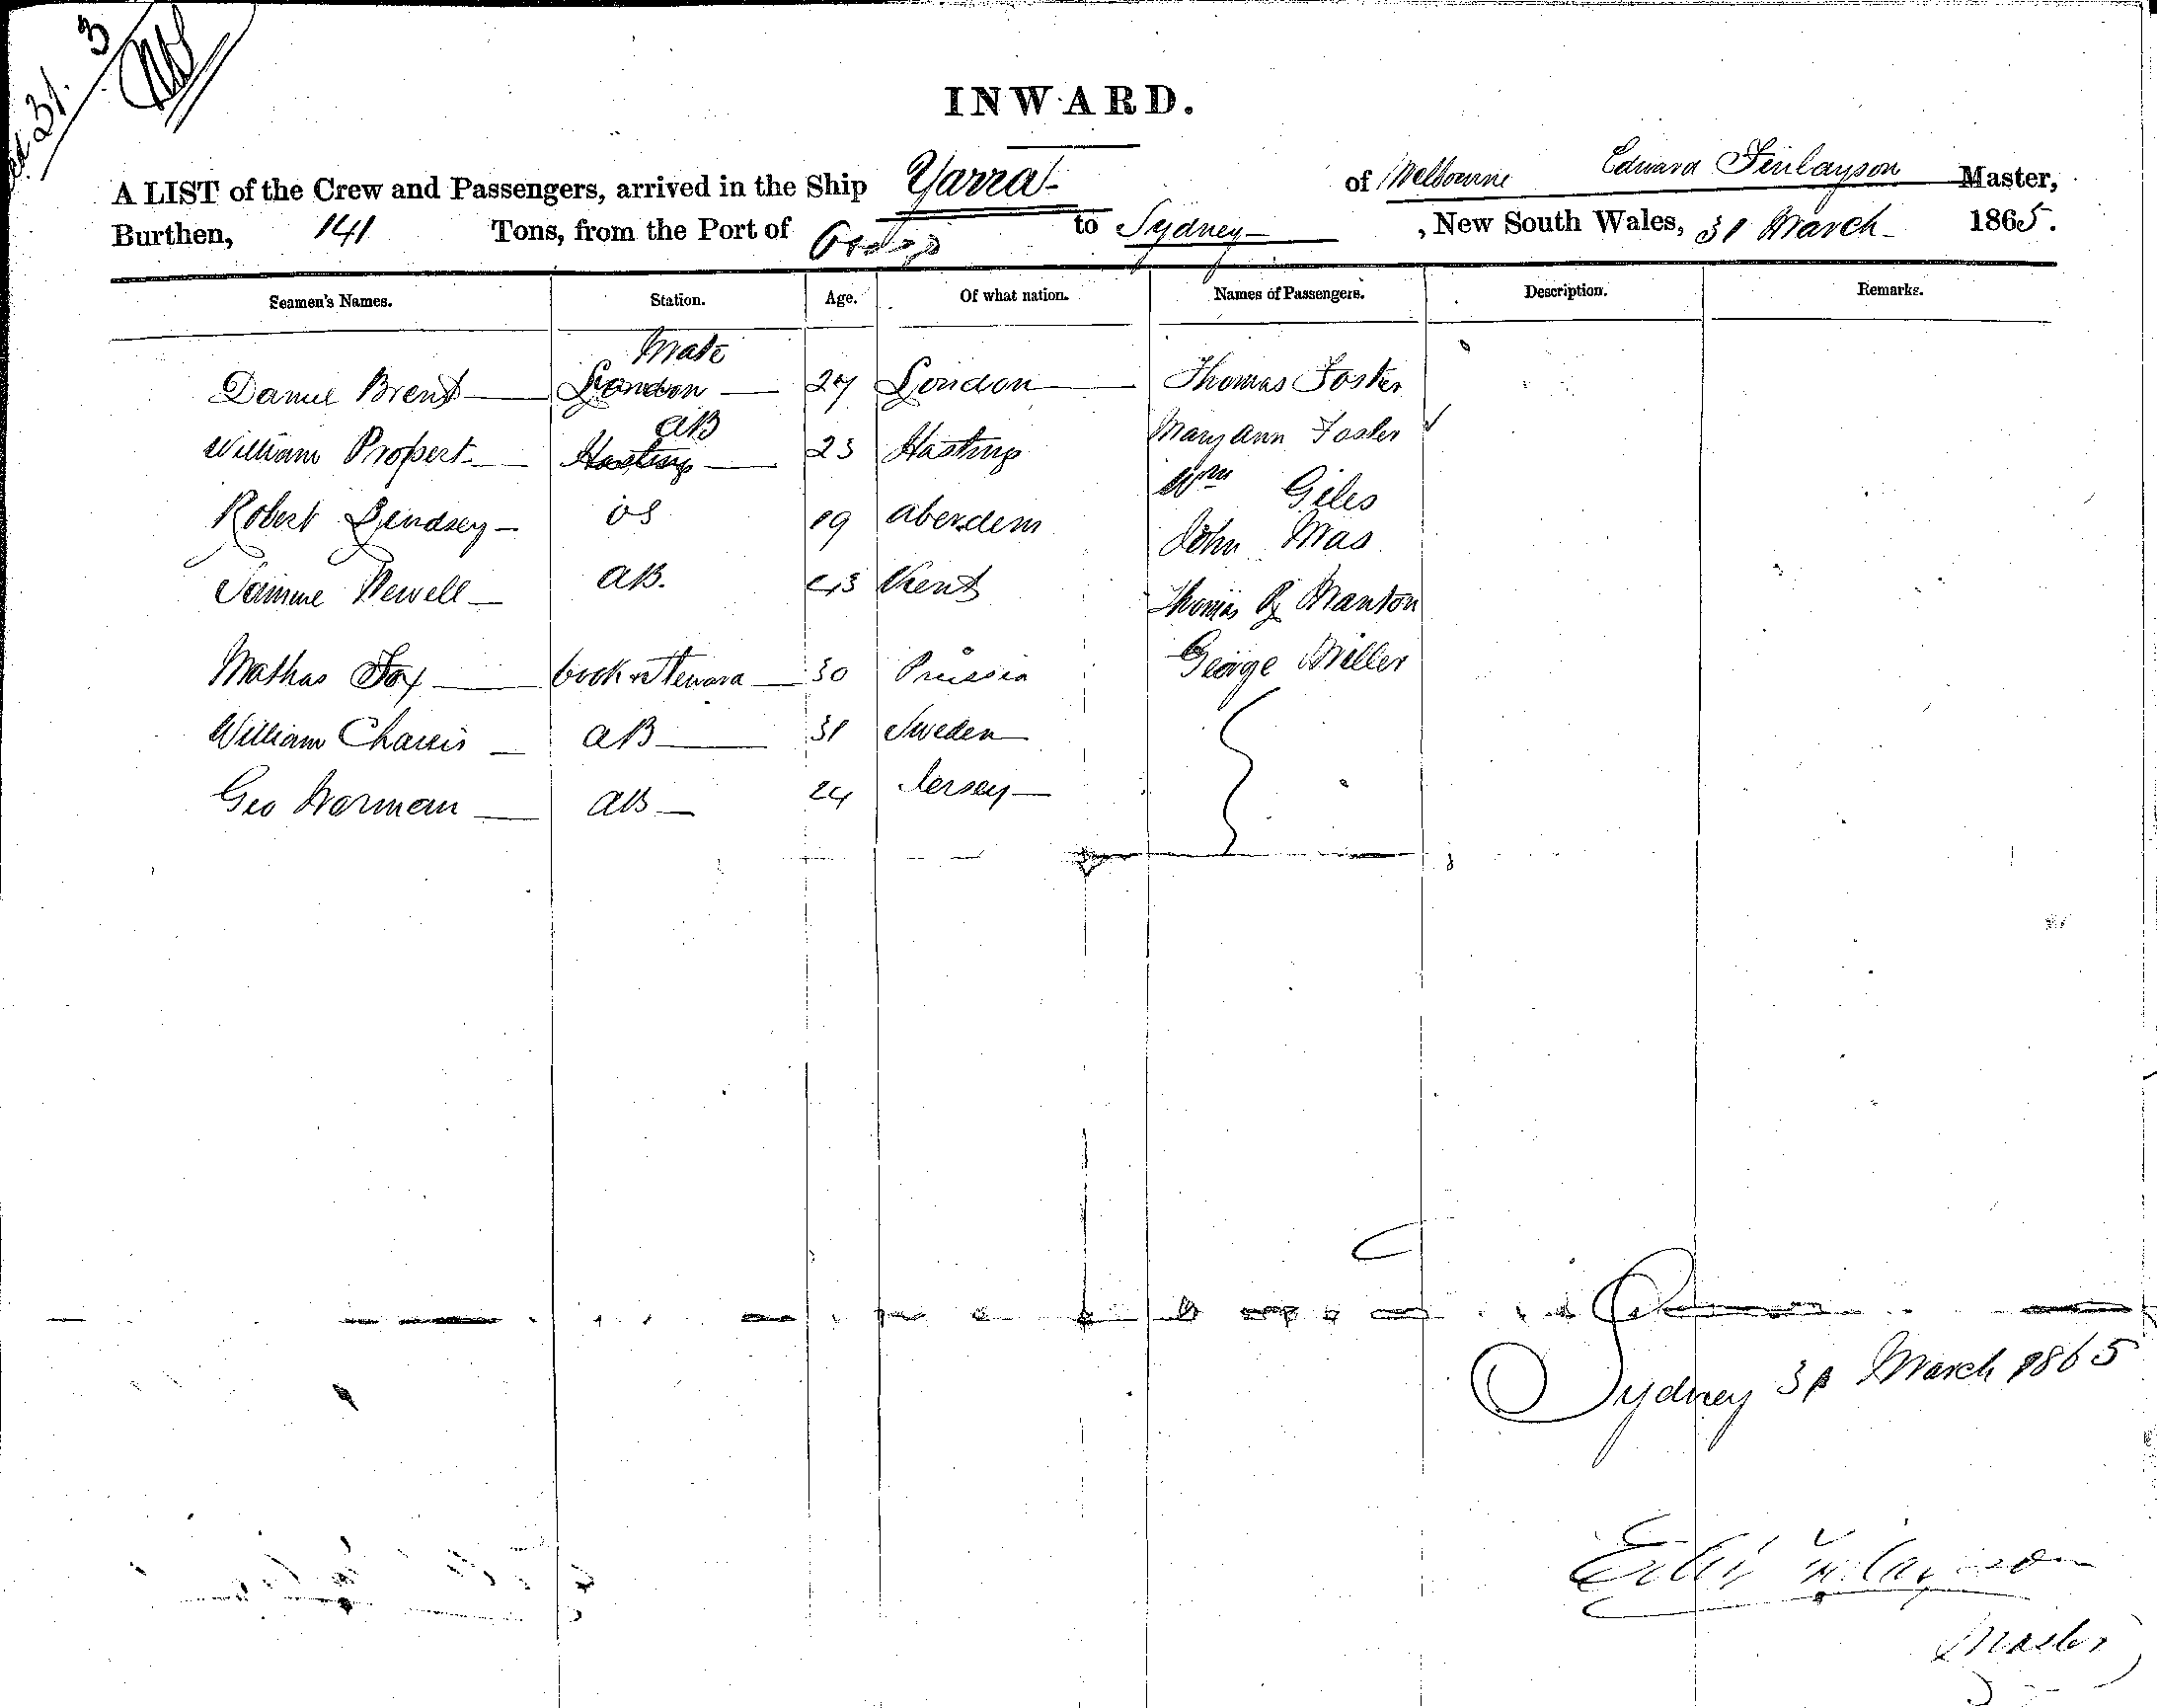 31. 3
INWARD.
A LIST of the Crew and Passengers, arrived in the Ship Yarra of Melbourne Edward Finlayson Master,
Burthen, 141 Tons, from the Port of Otago to Sydney , New South Wales, 31 March 1865.
Seamen's Names. Station. Age. Of what nation. Names of Passengers. Description. Remarks.
Mate
Daniel Brent London 27 London Thomas Foster
AB
William Propert Hastings 23 Hastings Mary Ann Foster
Wm Giles
Robert Lindsey OS 19 Aberdeen
John Mas
AB. 43 Kent
Newell Thomas Manton
Mathas Fox Cook & Steward 30 Prussia George Miller
William AB 31 Sweden
Geo Norman AB 24 Jersey
Sydney 31 March 1865
Finlayson
Master